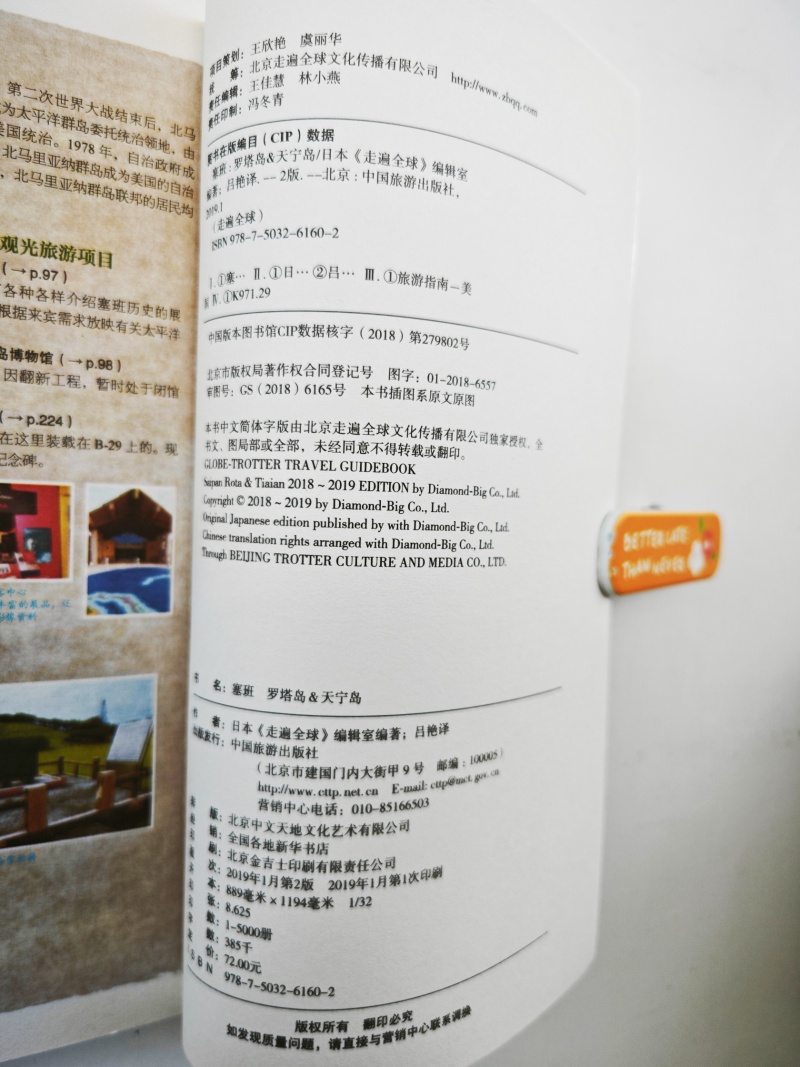 第二次世界大战结束后，北马
为太平洋群岛委托统治领地，由
美国统治。1978年，自治政府成
北马里亚纳群岛成为美国的自治
，北马里亚纳群岛联邦的居民均
观光旅游项目
（→p.97）
各种各样介绍塞班历史的展
根据来宾需求放映有关太平洋
岛博物馆（→p.98）
因翻新工程，暂时处于闭馆
（→p.224）
在这里装载在B-29上的。现
纪念碑。
项目策划：王欣艳 虞丽华
统 筹：北京走遍全球文化传播有限公司 http://www.zbqq.com
责任编辑：王佳慧 林小燕
责任印制：冯冬青
图书在版编目（CIP）数据
塞班：罗塔岛&天宁岛/日本《走遍全球》编辑室
编著；吕艳译. -- 2版. --北京：中国旅游出版社，
2019.1
（走遍全球）
ISBN 978-7-5032-6160-2
Ⅰ. ①塞… Ⅱ. ①日… ②吕… Ⅲ. ①旅游指南－美
Ⅳ. ①K971.29
中国版本图书馆CIP数据核字（2018）第279802号
北京市版权局著作权合同登记号 图字：01-2018-6557
审图号：GS（2018）6165号 本书插图系原文原图
本书中文简体字版由北京走遍全球文化传播有限公司独家授权，全
书文、图局部或全部，未经同意不得转载或翻印。
GLOBE-TROTTER TRAVEL GUIDEBOOK
Saipan Rota & Tiaian 2018 ~ 2019 EDITION by Diamond-Big Co., Ltd.
Copyright © 2018 ~ 2019 by Diamond-Big Co., Ltd.
Original Japanese edition published by with Diamond-Big Co., Ltd.
Chinese translation rights arranged with Diamond-Big Co., Ltd.
Through BEIJING TROTTER CULTURE AND MEDIA CO., LTD.
BETTER LATE
THAN NEVER
书 名：塞班 罗塔岛＆天宁岛
作 者：日本《走遍全球》编辑室编著；吕艳译
出版发行：中国旅游出版社
（北京市建国门内大街甲9号 邮编：100005）
http://www.cttp.net.cn E-mail: cttp@mct.gov.cn
营销中心电话：010-85166503
排 版：北京中文天地文化艺术有限公司
经 销：全国各地新华书店
印 刷：北京金吉士印刷有限责任公司
版 次：2019年1月第2版 2019年1月第1次印刷
开 本：889毫米×1194毫米 1/32
印 张：8.625
印 数：1-5000册
字 数：385千
定 价：72.00元
ISBN 978-7-5032-6160-2
版权所有 翻印必究
如发现质量问题，请直接与营销中心联系调换